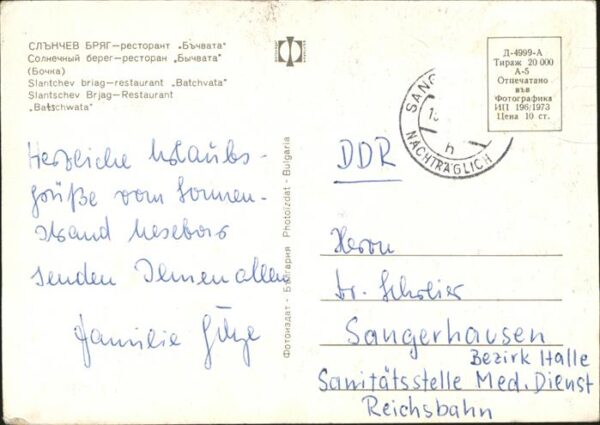 СЛЪНЧЕВ БРЯГ—ресторант „Бъчвата"
Солнечный берег—ресторан „Бычвата"
(Бочка)
Slantchev briag—restaurant „Batchvata"
Slantschev Brjag—Restaurant
„Batschwata"
Herzliche Urlaubs-
grüße vom Sonnen-
strand Nesebars
senden Ihnen allen
Familie
Фотоиздат - България Photoizdat - Bulgaria
Д-4999-А
Тираж 20 000
А-5
Отпечатано
във
Фотографика
ИП 196/1973
Цена 10 ст.
SANG
h
NACHTRÄGLICH
DDR
Herrn
Dr. Schreier
Sangerhausen
Bezirk Halle
Sanitätsstelle Med. Dienst
Reichsbahn